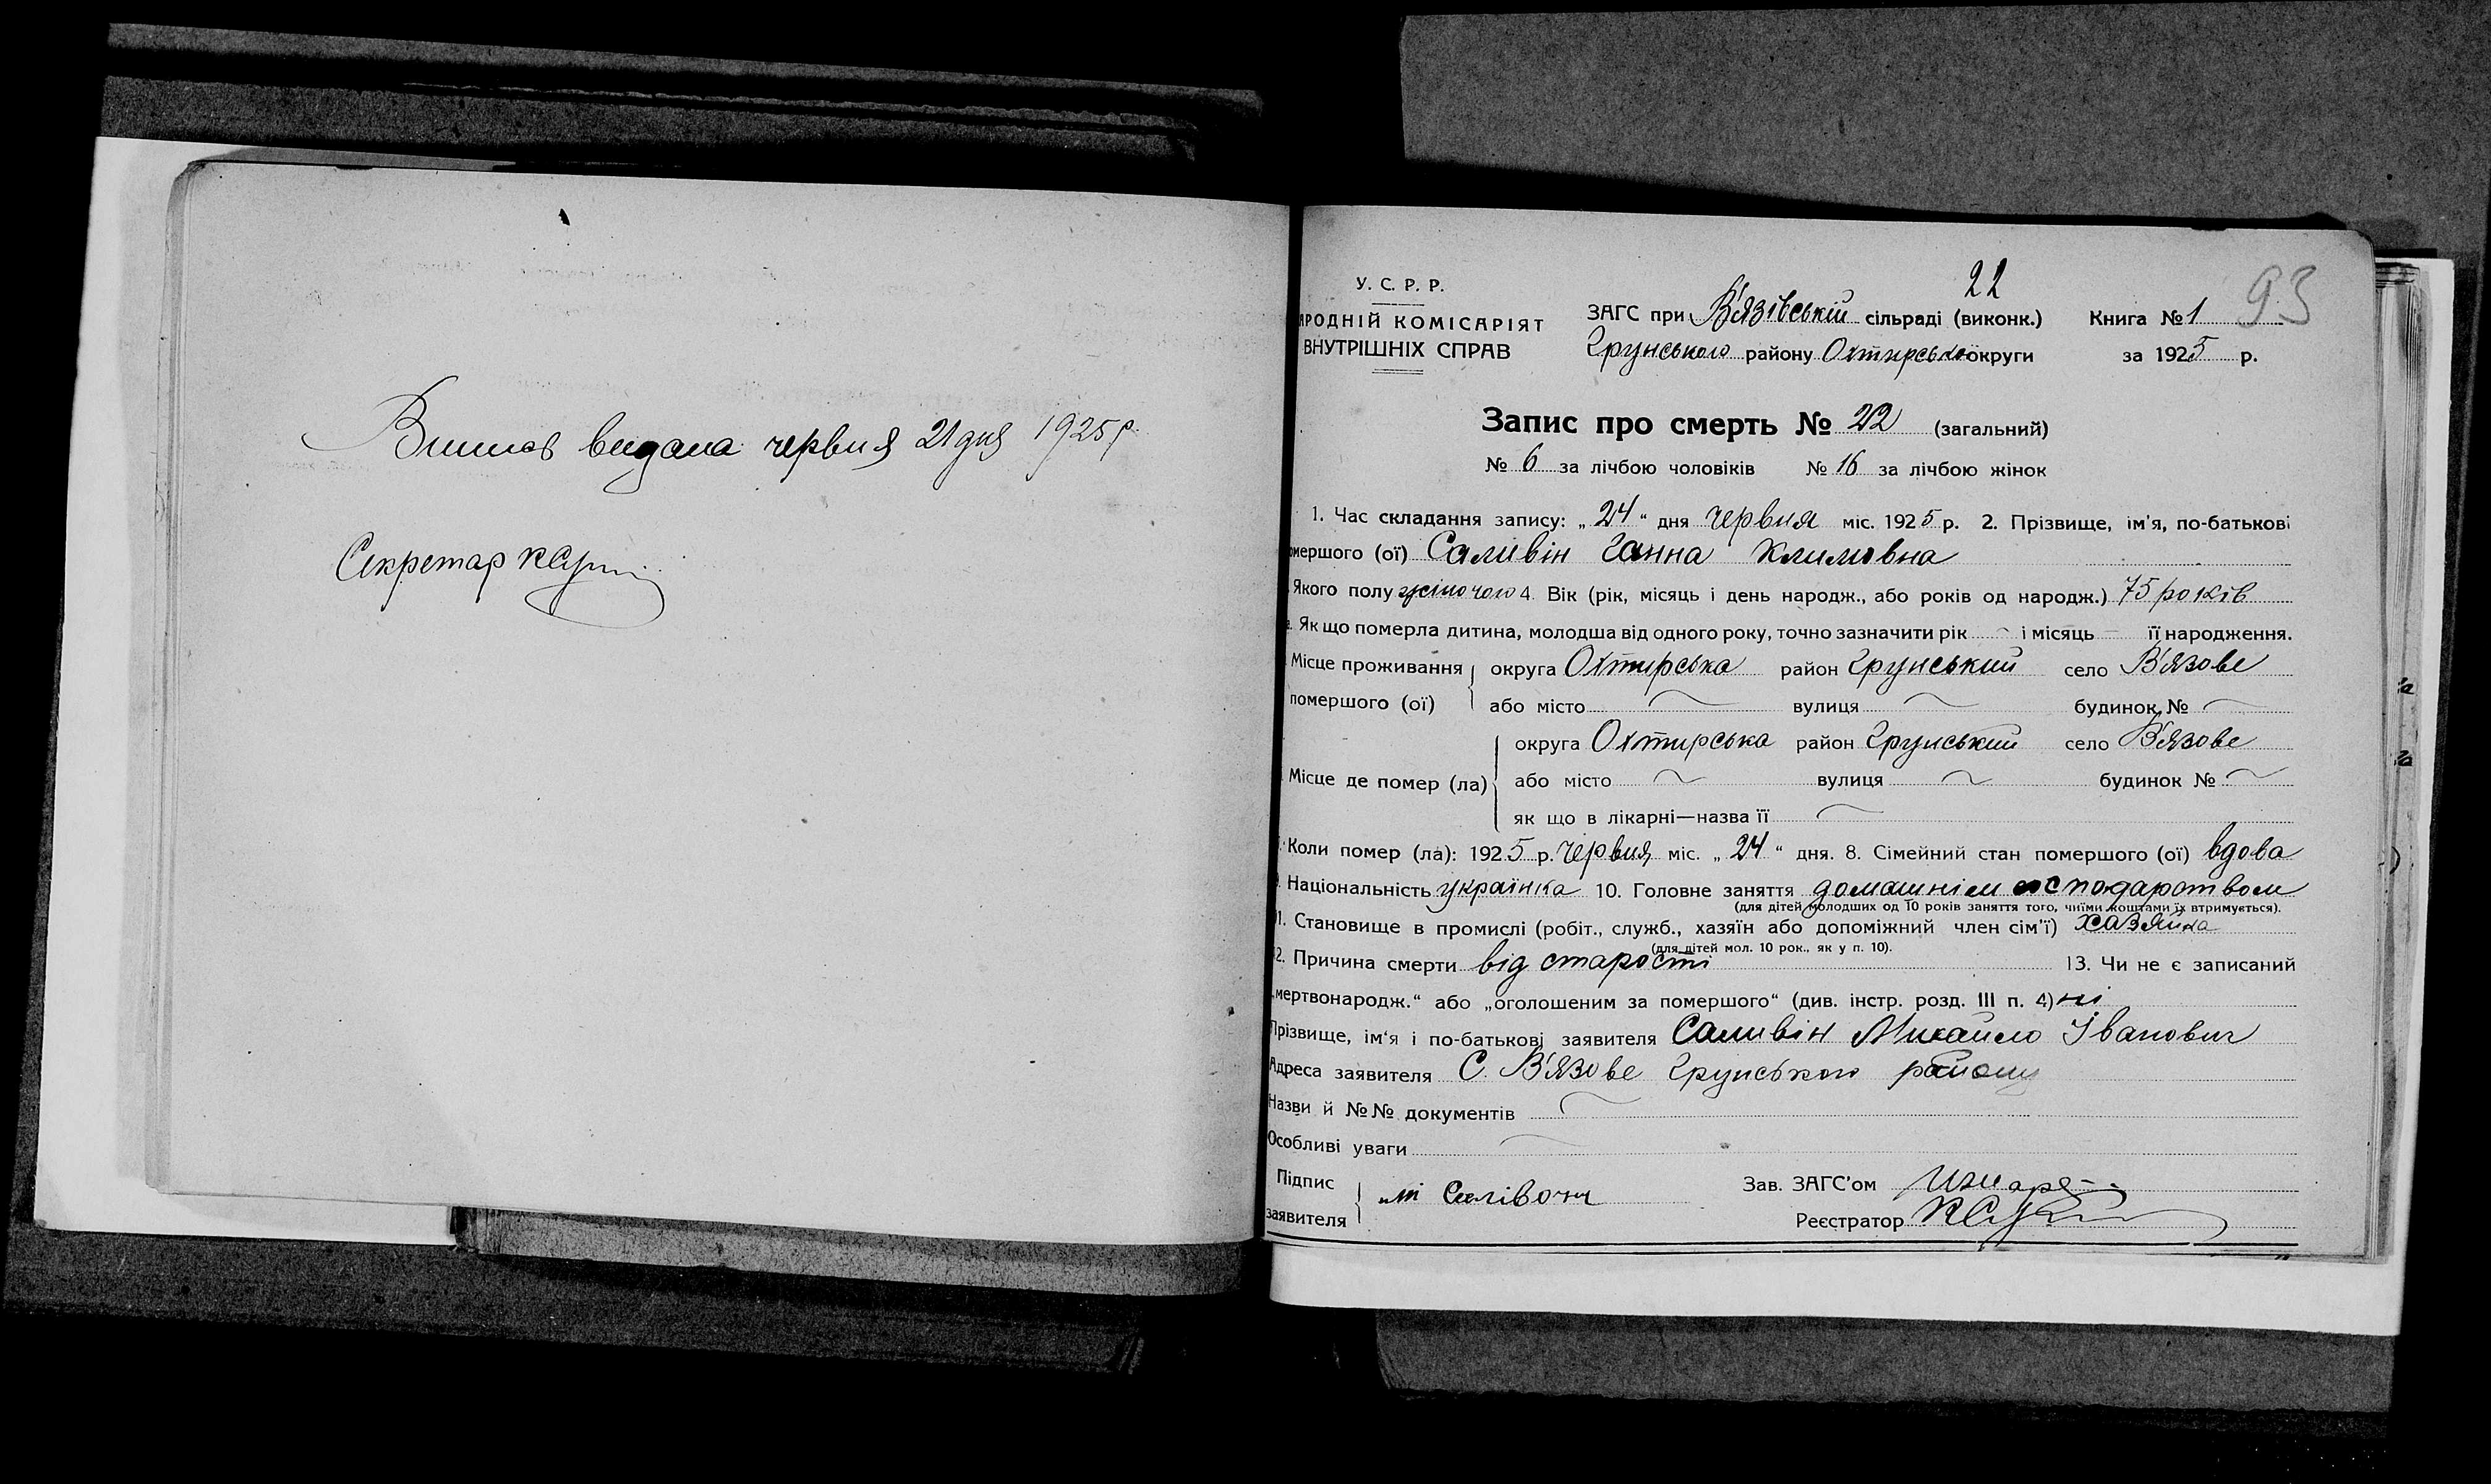 Випись видана червня 21 дня 1925 р.
Секретар
22
93
У. С. Р. Р.
АРОДНІЙ КОМІСАРІЯТ
ВНУТРІШНІХ СПРАВ
ЗАГС при В'язівській сільраді (виконк.) Книга № 1
Грунського району Охтирської округи за 1925 р.
Запис про смерть № 22 (загальний)
№ 6 за лічбою чоловіків № 16 за лічбою жінок
1. Час складання запису: „24“ дня червня міс. 1925 р. 2. Прізвище, ім'я, по-батькові
омершого (ої) Саливін Ганна Климовна
Якого полу жіночого 4. Вік (рік, місяць і день народж., або років од народж.) 75 років
Як що померла дитина, молодша від одного року, точно зазначити рік і місяць її народження.
Місце проживання округа Охтирська район Грунський село В'язове
помершого (ої) або місто вулиця будинок №
округа Охтирська район Грунський село В'язове
Місце де помер (ла) або місто вулиця будинок №
як що в лікарні—назва її
Коли помер (ла): 1925 р. червня міс. „24“ дня. 8. Сімейний стан помершого (ої) вдова
Національність українка 10. Головне заняття домашнім господарством
(для дітей молодших од 10 років заняття того, чиїми коштами їх втримується).
11. Становище в промислі (робіт., служб., хазяїн або допоміжний член сім'ї) хазяйка
(для дітей мол. 10 рок., як у п. 10).
12. Причина смерти від старости 13. Чи не є записаний
„мертвонародж.“ або „оголошеним за помершого“ (див. інстр. розд. III п. 4) ні
Прізвище, ім'я і по-батькові заявителя Саливін Михайло Іванович
Адреса заявителя С. В'язове Грунського району
Назви й №№ документів
Особливі уваги
Підпис
заявителя
Зав. ЗАГС'ом
Реєстратор